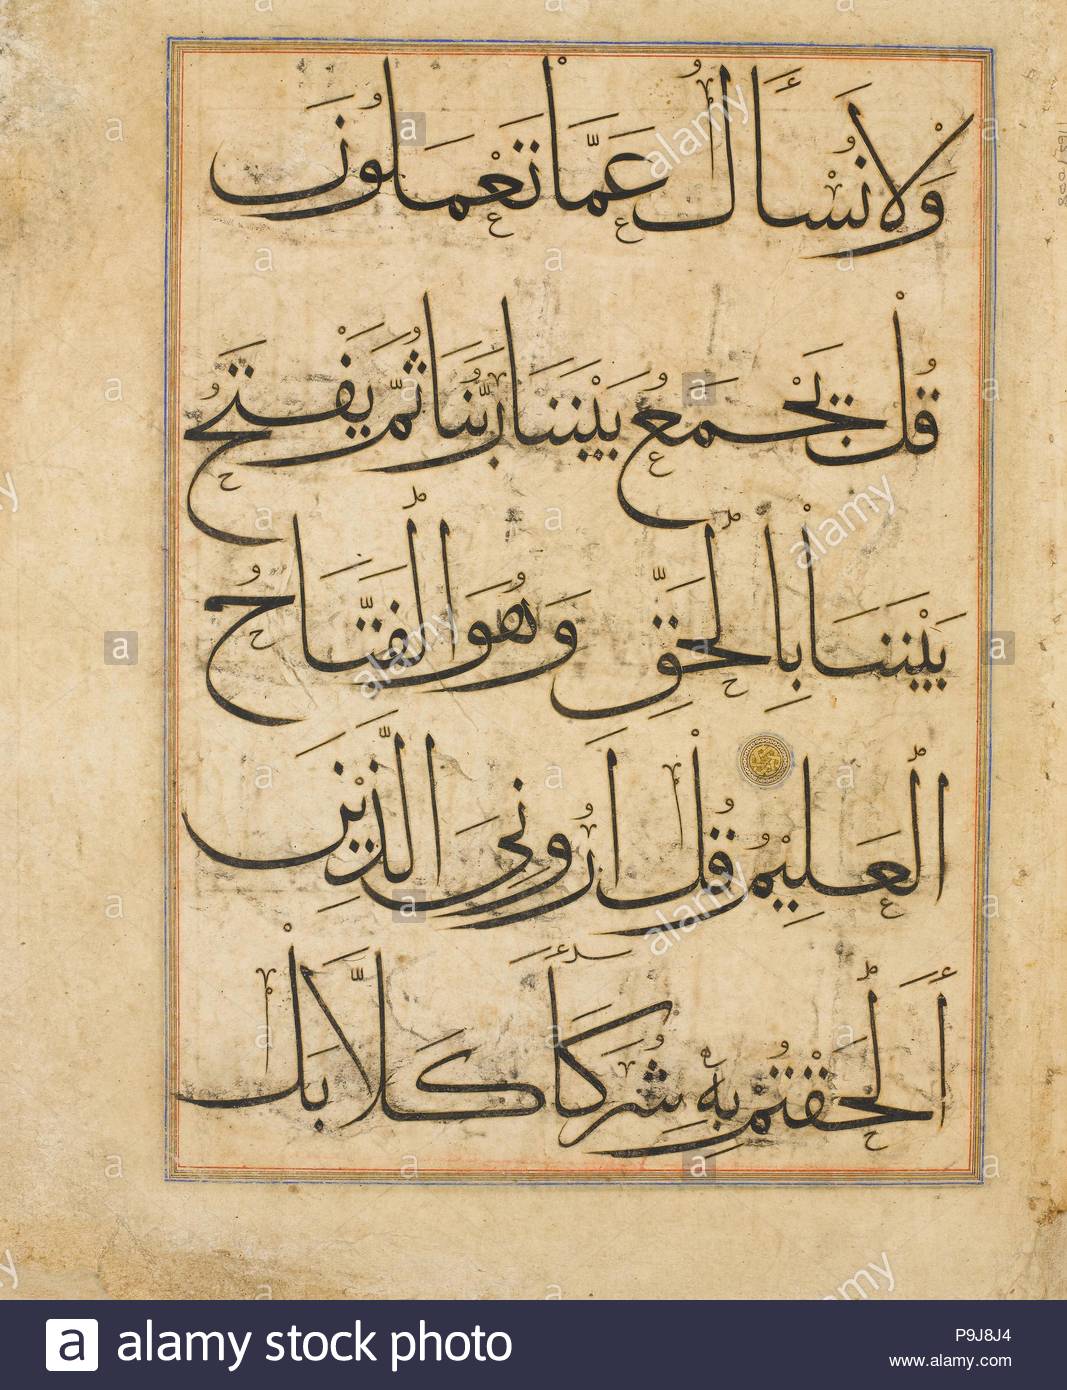 وَلَا نُسْأَلُ عَمَّا تَعْمَلُونَ
قُلْ يَجْمَعُ بَيْنَنَا رَبُّنَا ثُمَّ يَفْتَحُ
بَيْنَنَا بِالْحَقِّ وَهُوَ الْفَتَّاحُ
الْعَلِيمُ قُلْ أَرُونِيَ الَّذِينَ
أَلْحَقْتُمْ بِهِ شُرَكَاءَ كَلَّا بَلْ
alamy stock photo
P9J8J4
www.alamy.com